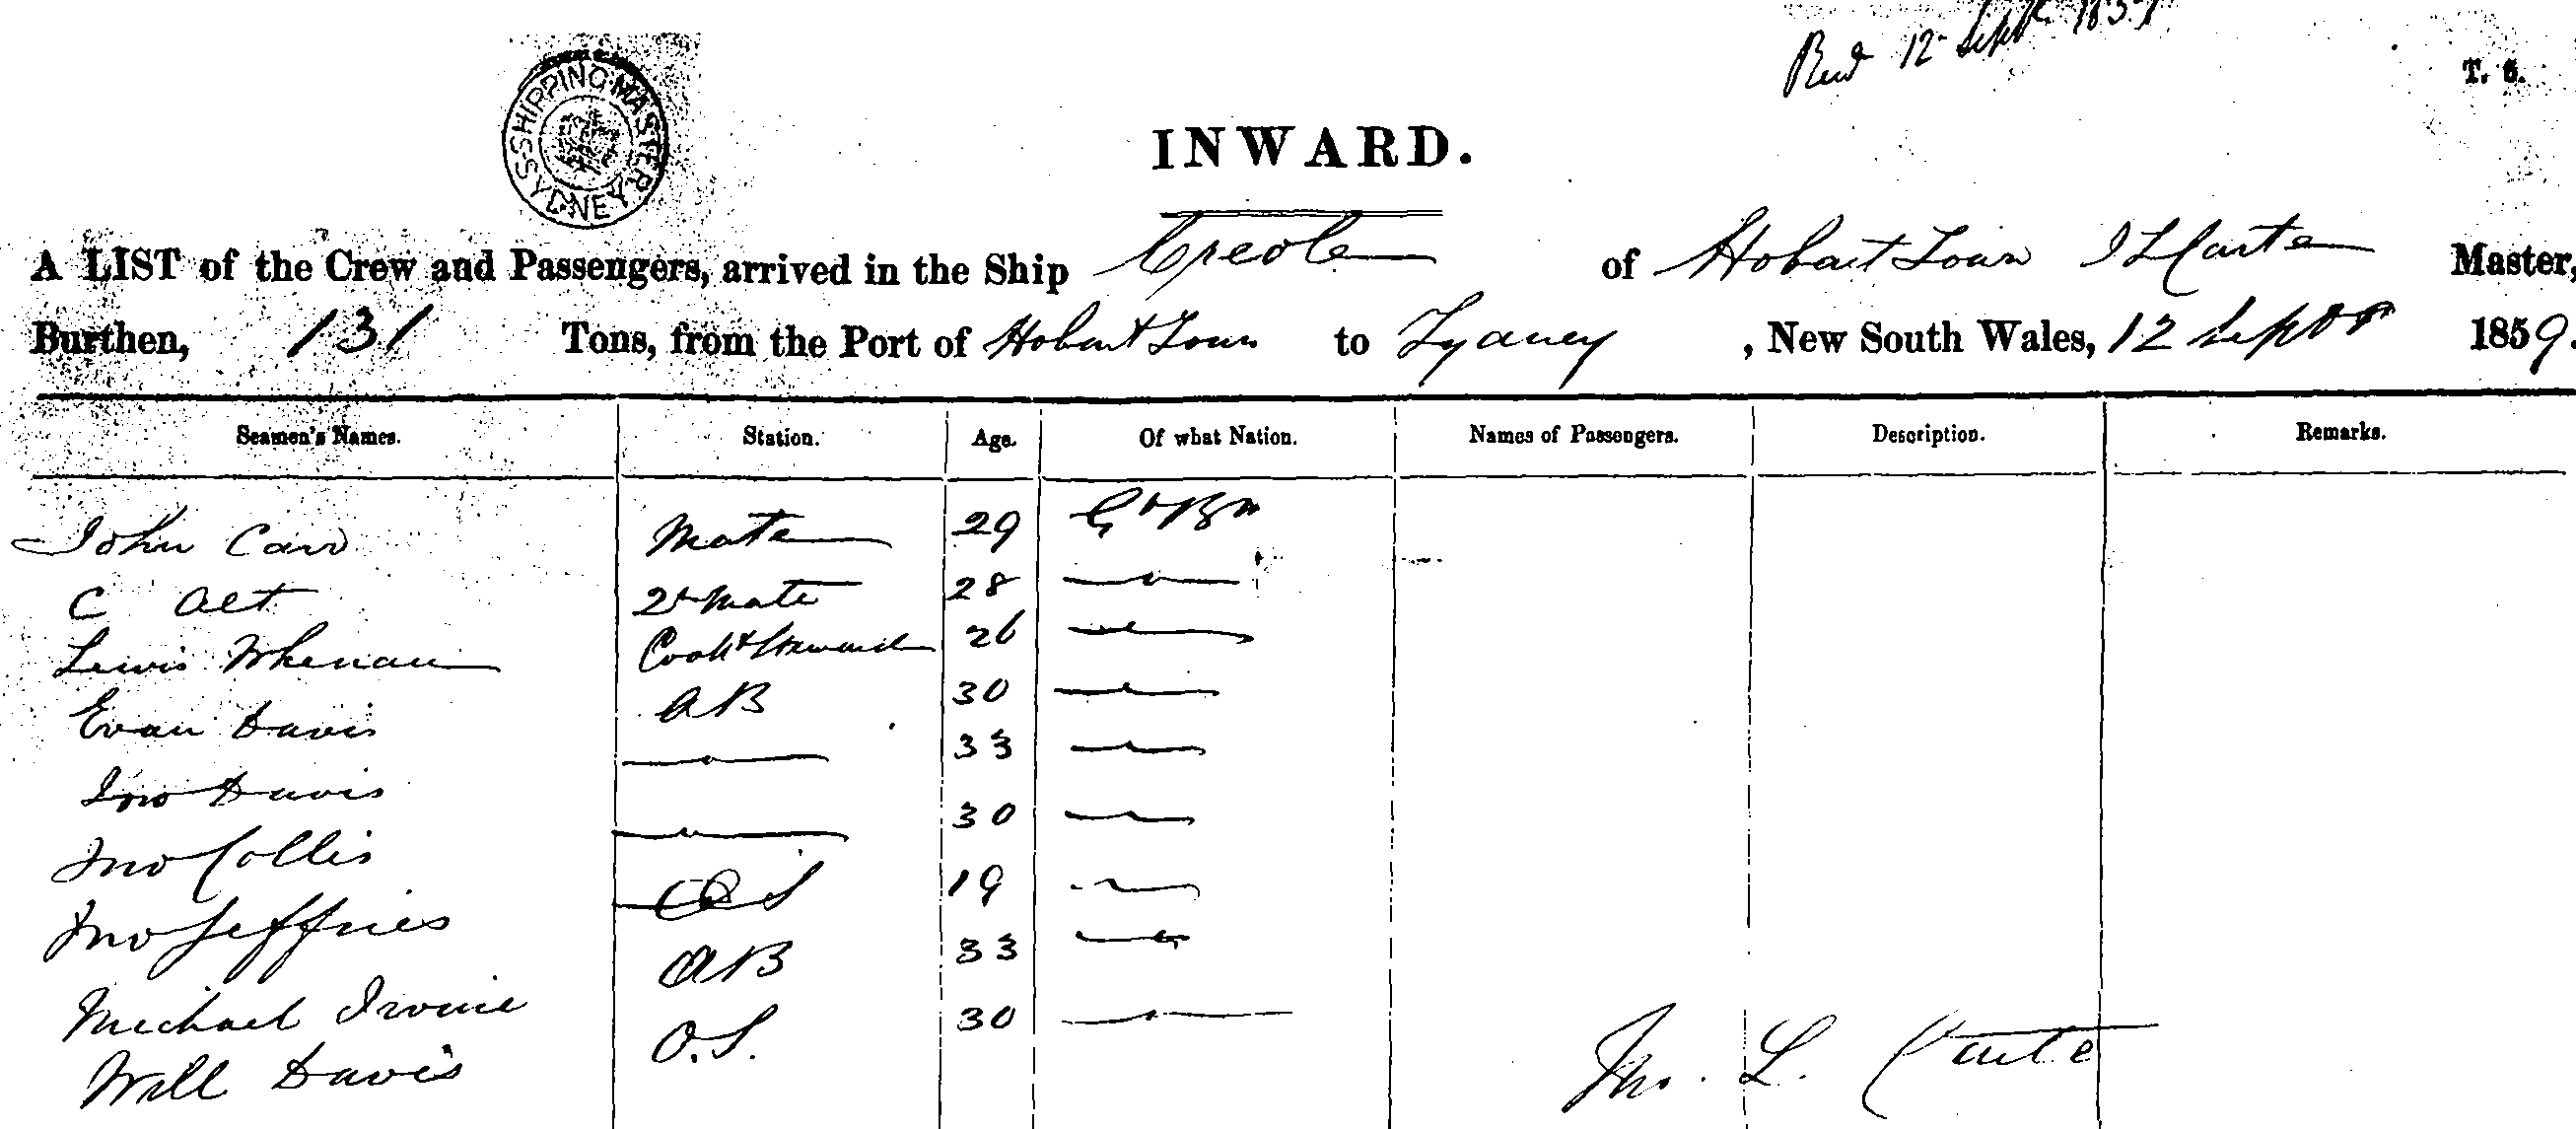 Recd 12 Septr 1859
T. 6.
SHIPPING MASTER SYDNEY
INWARD.
A LIST of the Crew and Passengers, arrived in the Ship Creole of Hobart Town J L Carte Master,
Burthen, 131 Tons, from the Port of Hobart Town to Sydney, New South Wales, 12 Septr 1859.
Seamen's Names. Station. Age. Of what Nation. Names of Passengers. Description. Remarks.
John Carr Mate 29 Gt Bn
C Alt 2d Mate 28 — " —
Lewis Whenan Cook & Steward 26 — " —
Evan Davis AB 30 — " —
Jno Davis — " — 33 — " —
Jno Collis — " — 30 — " —
Jno Jeffries OS 19 — " —
Michael Irvine AB 33 — " —
Will Davis O.S. 30 — " —
Jno. L. Carte